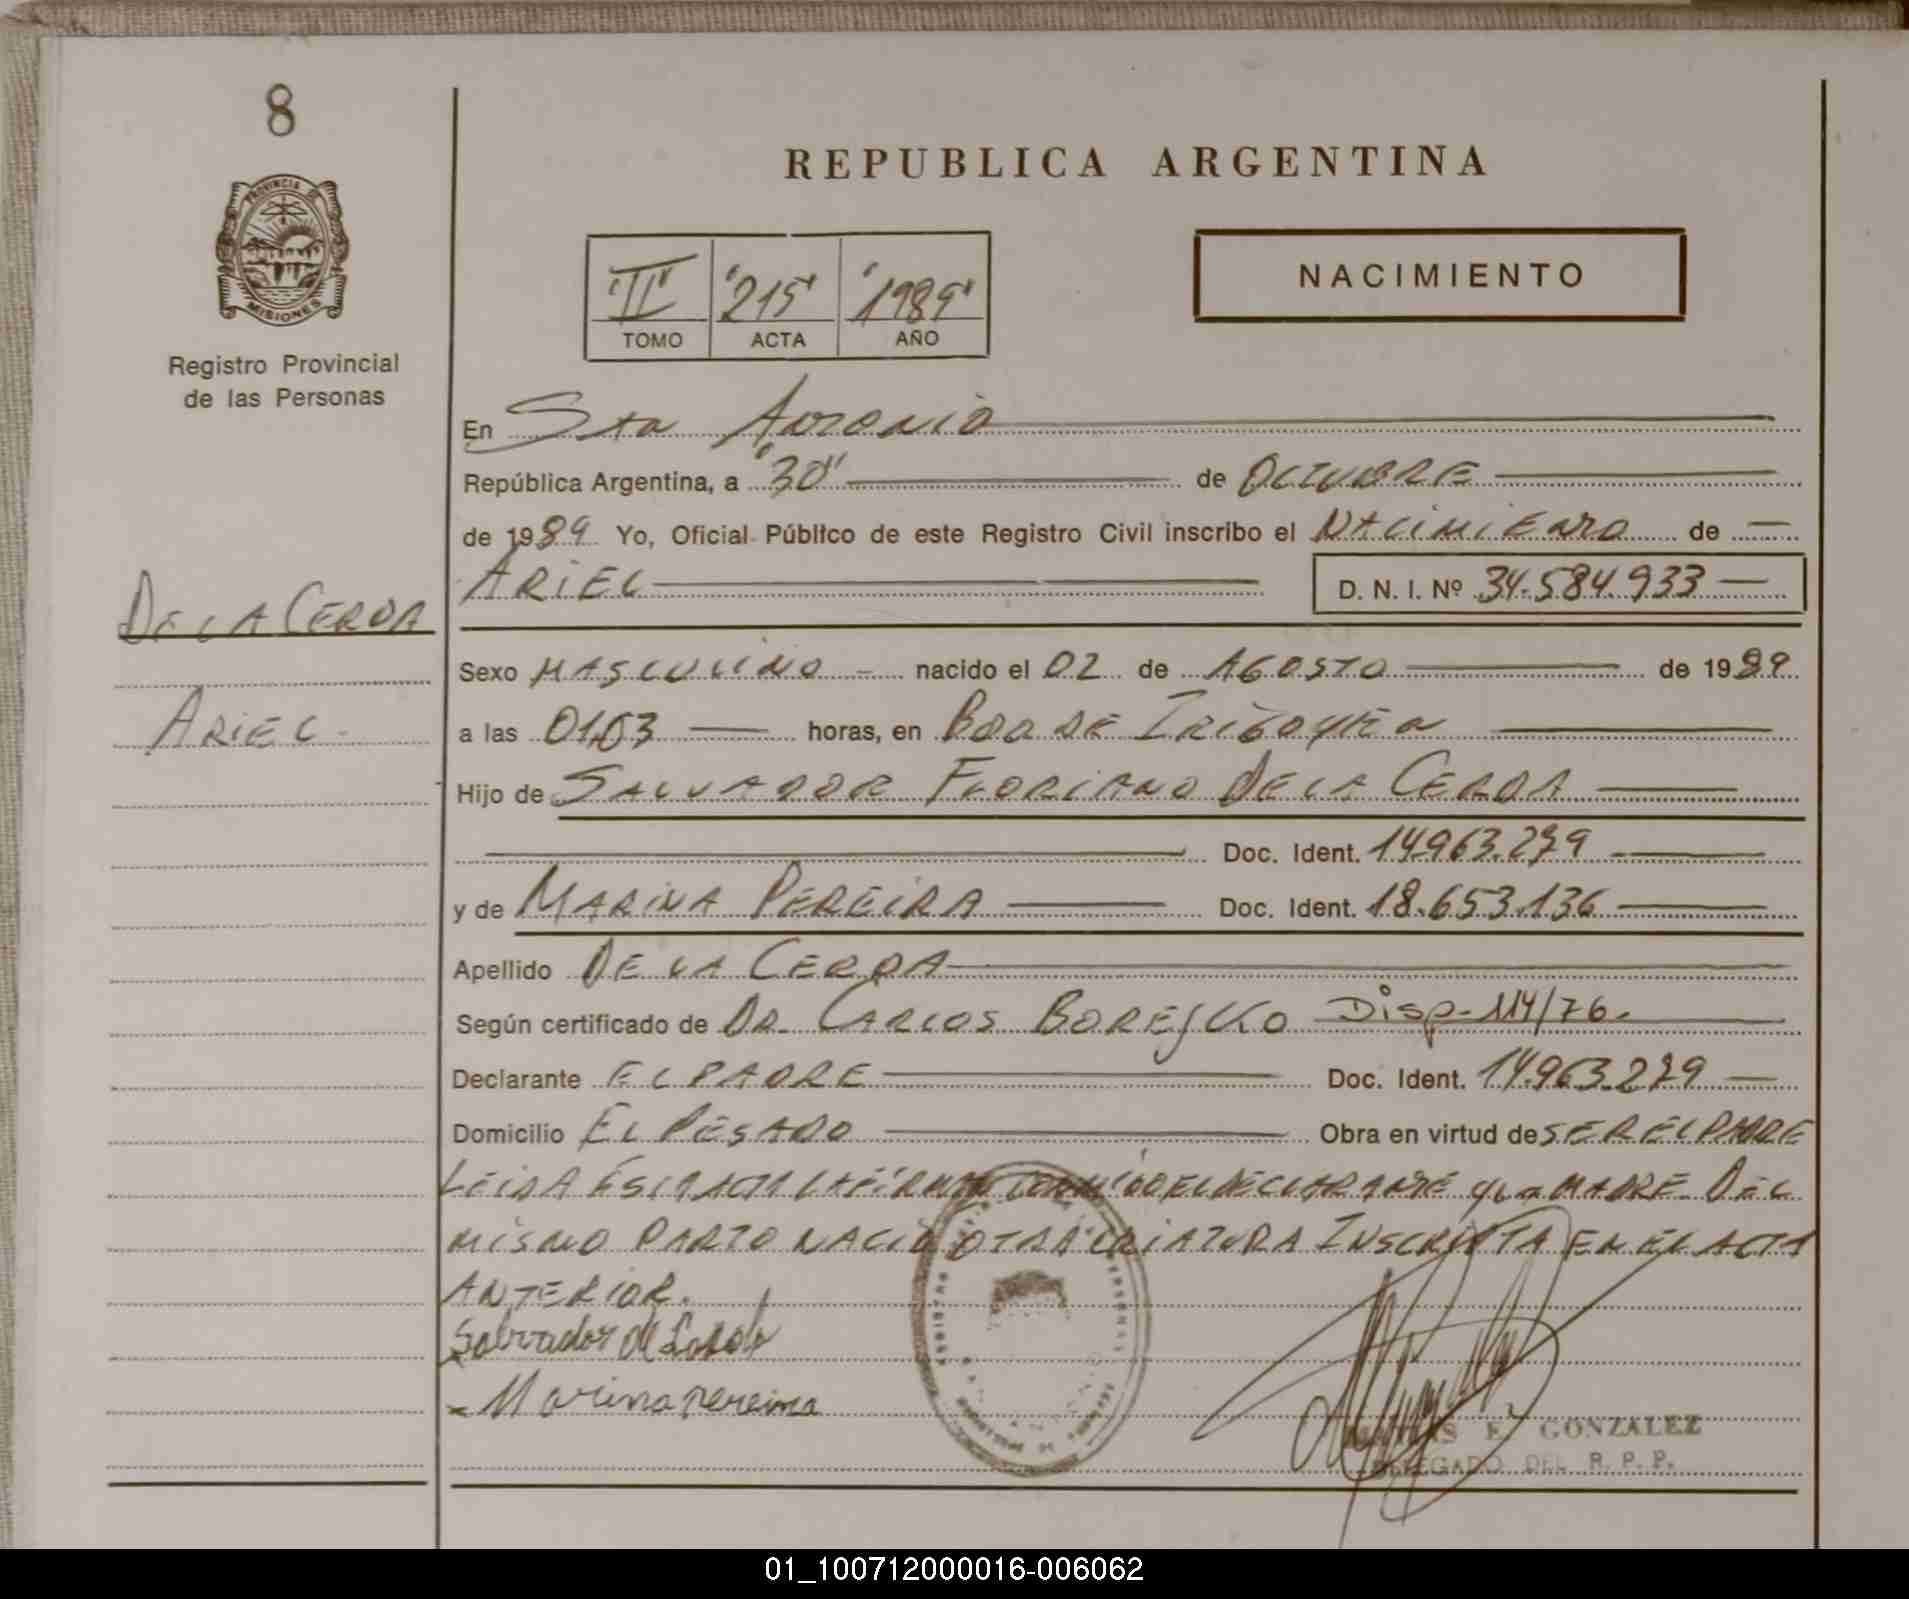 8
REPUBLICA ARGENTINA
PROVINCIA DE
MISIONES
Registro Provincial
de las Personas
"II" "215" "1989"
TOMO ACTA AÑO
NACIMIENTO
En Sta Antonio
República Argentina, a "30" de OCTUBRE
de 1989 Yo, Oficial Público de este Registro Civil inscribo el NACIMIENTO de
ARIEL D. N. I. Nº 34.584.933
DE LA CERDA
ARIEL
Sexo MASCULINO nacido el 02 de AGOSTO de 1989
a las 01,03 horas, en Bdo DE IRIGOYEN
Hijo de SALVADOR FLORIANO DE LA CERDA
Doc. Ident. 14.963.279
y de MARINA PEREIRA Doc. Ident. 18.653.136
Apellido DE LA CERDA
Según certificado de DR. CARLOS BORESKO Disp. 114/76.
Declarante EL PADRE Doc. Ident. 14.963.279
Domicilio EL PESADO Obra en virtud de SER EL PADRE
LEIDA ESTA ACTA LA FIRMAN CONMIGO EL DECLARANTE y La MADRE DEL
MISMO PARTO NACIO OTRA CRIATURA INSCRIPTA EN EL ACTA
ANTERIOR.
Salvador
Marina Pereira
E. GONZALEZ
DELEGADO DEL R. P. P.
01_100712000016-006062